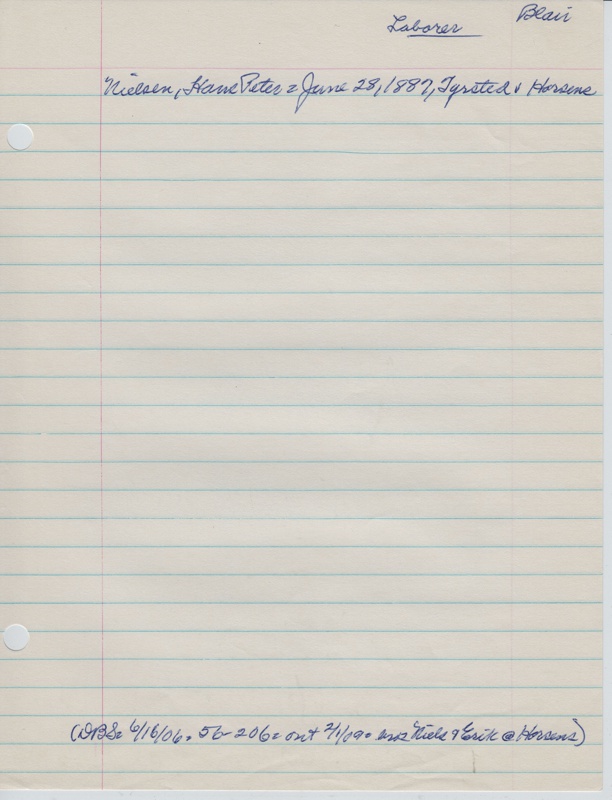 Blair
Laborer
Nielsen, Hans Peter = June 28, 1887, Tyrsted v Horsens
(DBS= 6/16/06 = 56-206 = out 2/1/09 = Niels & Erik @ Horsens)